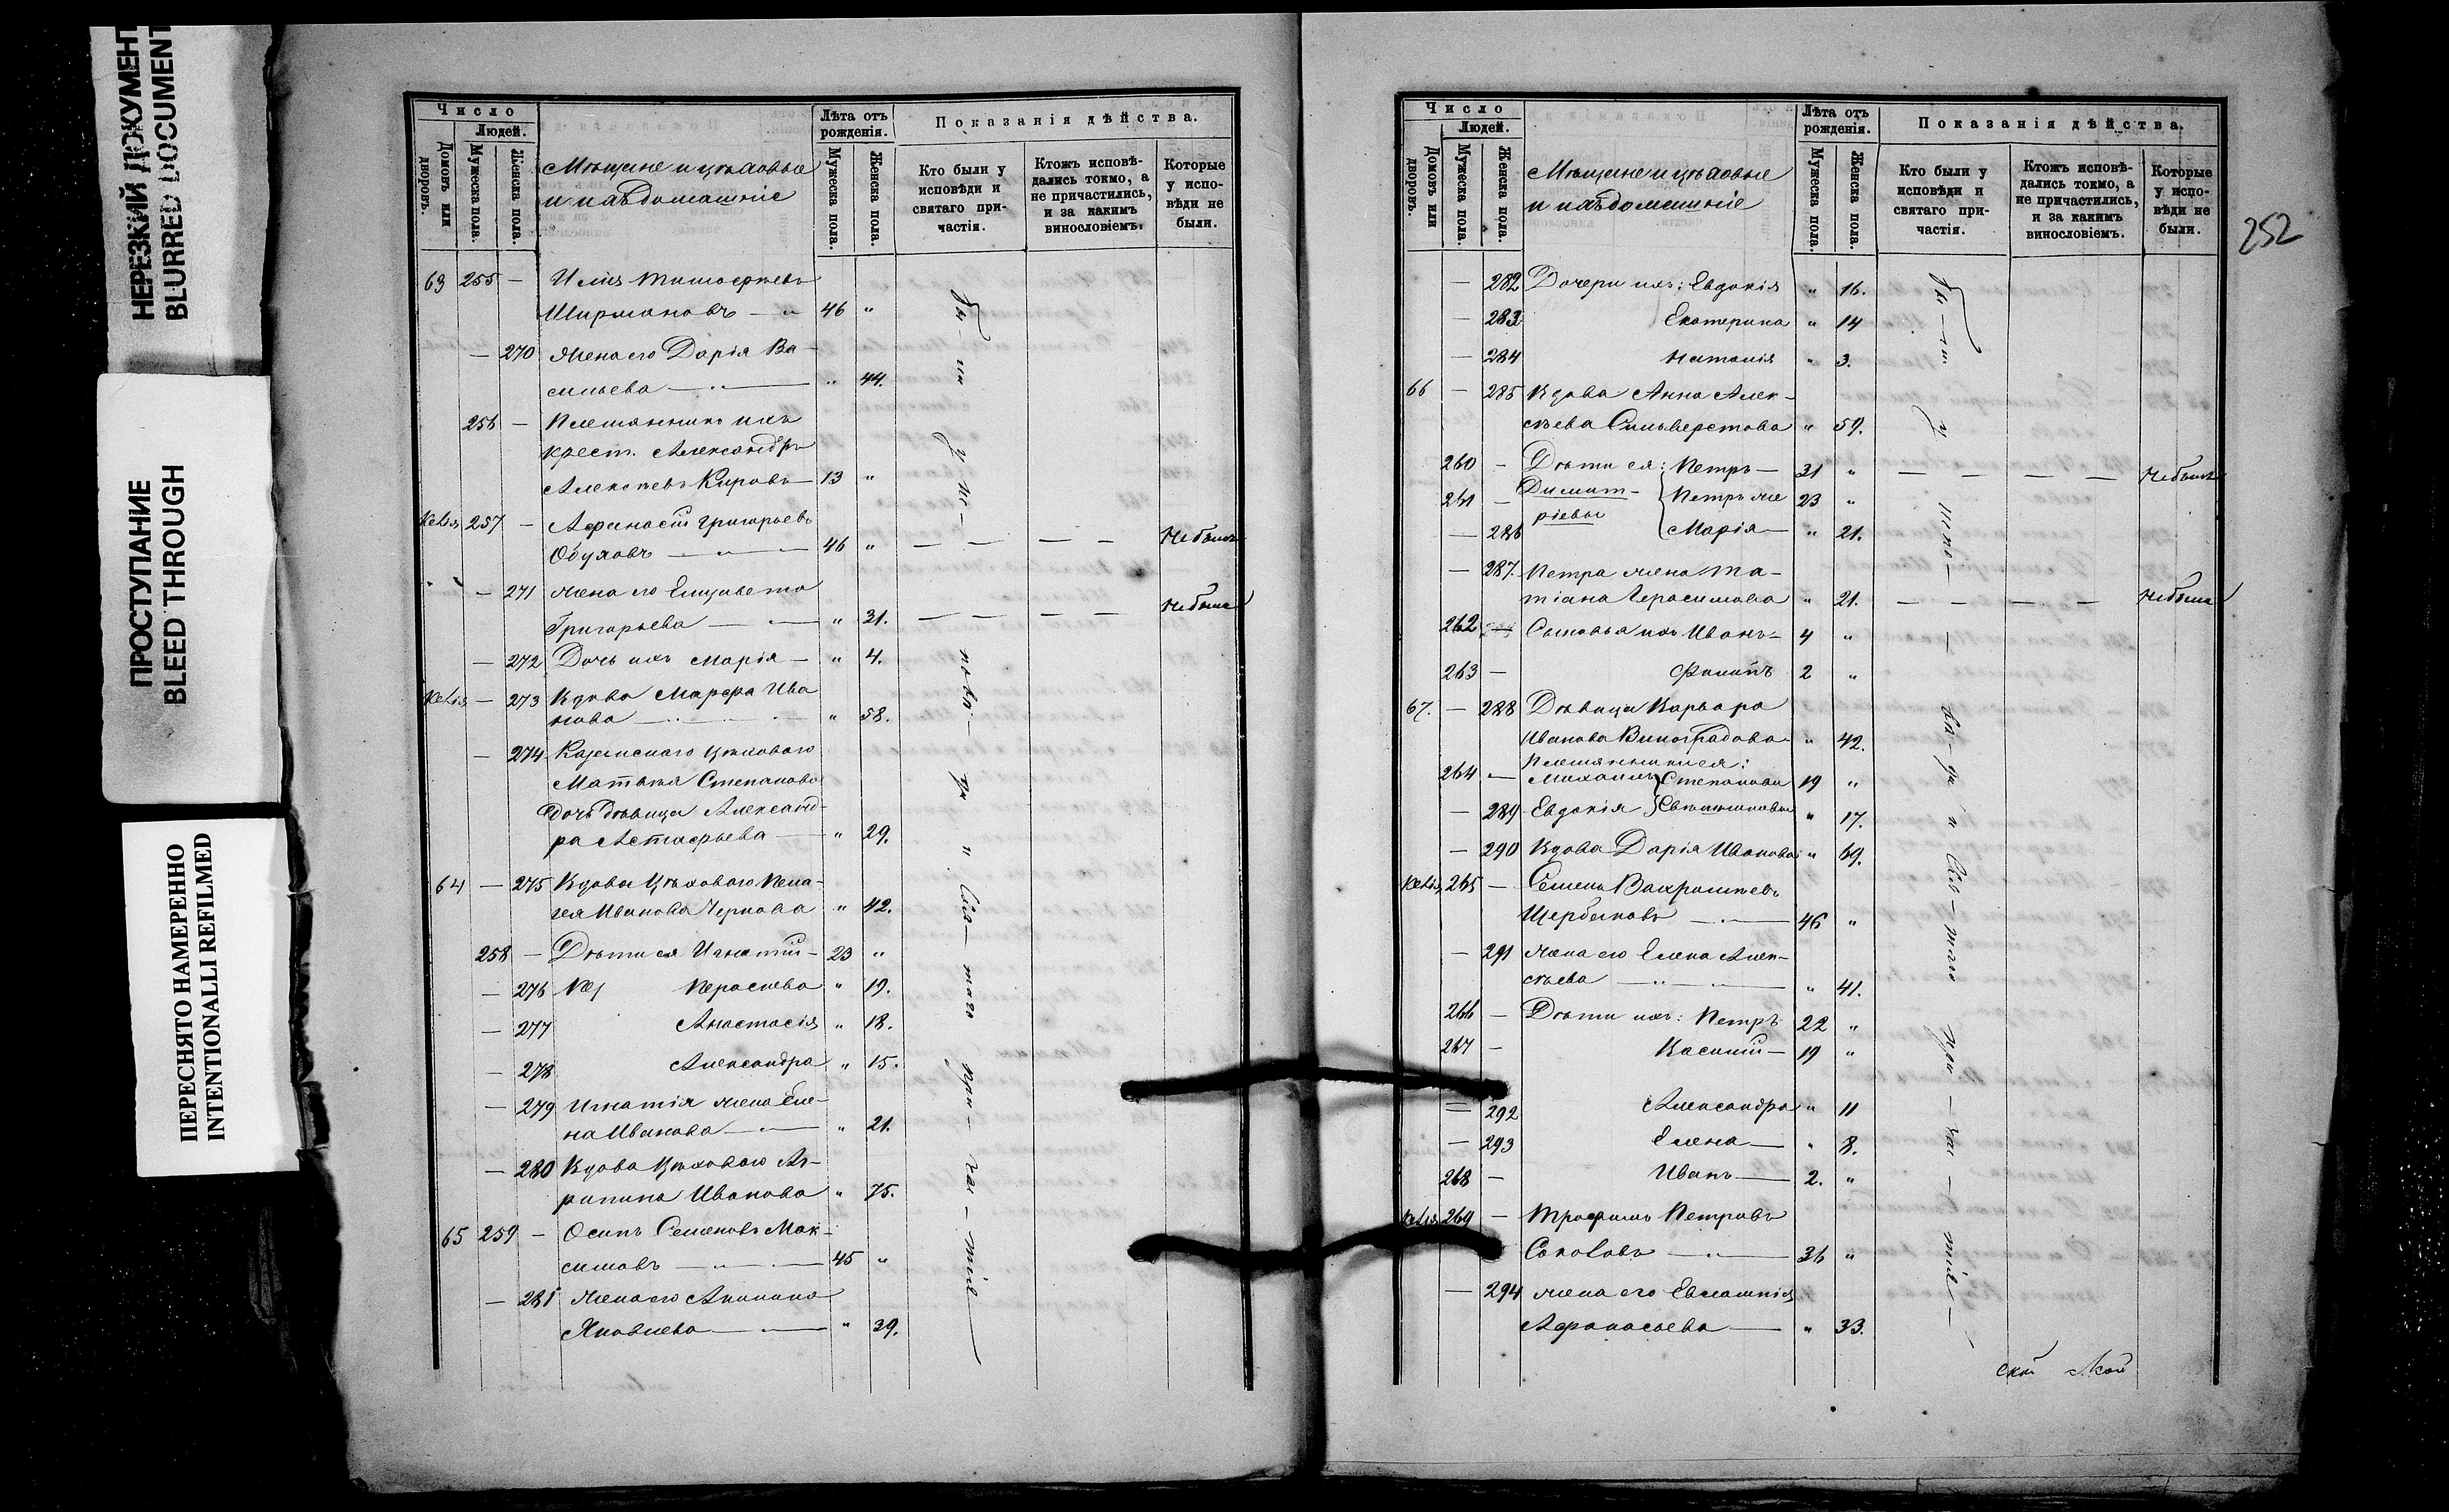 НЕРЕЗКИЙ ДОКУМЕНТ
BLURRED DOCUMENT
ПРОСТУПАНИЕ
BLEED THROUGH
ПЕРЕСНЯТО НАМЕРЕННО
INTENTIONALLI REFILMED
Число
Людей.
Домовъ или дворовъ.
Мужеска пола.
Женска пола.
Мѣщане и цѣховые
и ихъ домашніе
Лѣта отъ рожденія.
Мужеска пола.
Женска пола.
Показанія дѣйства.
Кто были у исповѣди и святаго причастія.
Ктожъ исповѣдались токмо, а не причастились, и за какимъ винословіемъ.
Которые у исповѣди не были.
63 255 — Илія Тимофеевъ
Ширмановъ — 46 "
— 270 Жена его Дарія Ва-
сильева — " 44.
256 — Племянникъ ихъ
крест. Александръ
Алексѣевъ Кировъ — 13 "
Келія 257 — Афанасій Григорьевъ
Обуховъ — 46 " — — — — Небылъ
— 271 Жена его Елизавета
Григорьева — " 31. — — — — Небыла
— 272 Дочь ихъ Марія — " 4.
Келія — 273 Вдова Марфа Ива
нова — " 58.
— 274 Казанскаго цѣховаго
Матвѣя Степанова
дочь дѣвица Александ-
ра Астафьева — " 29.
64 — 275 Вдова цѣховаго Пела-
гея Иванова Чернова " 42.
258 — Дѣти ея Игнатій — 23 "
— 276 Параскева " 19.
— 277 Анастасія " 18.
— 278 Александра " 15.
— 279 Игнатія жена Еле-
на Иванова — " 21.
— 280 Вдова цѣховаго Аг-
рипина Иванова " 75.
65 259 — Осипъ Семеновъ Мак-
симовъ — 45 "
— 281 Жена его Акилина
Яковлева — " 39.
Число
Людей.
Домовъ или дворовъ.
Мужеска пола.
Женска пола.
Мѣщане и цѣховые
и ихъ домашніе
Лѣта отъ рожденія.
Мужеска пола.
Женска пола.
Показанія дѣйства.
Кто были у исповѣди и святаго причастія.
Ктожъ исповѣдались токмо, а не причастились, и за какимъ винословіемъ.
Которые у исповѣди не были.
252
— 282 Дочери ихъ: Евдокія " 16.
— 283 Екатерина " 14
— 284 Наталія " 3.
66 — 285 Вдова Анна Алек-
сѣева Сильверстова " 59.
260 — Дѣти ея: Петръ — 31 " — — — — Небылъ
261 — Димит- Петръ же 23 "
— 286 ріевы Марія — " 21.
— 287. Петра жена Та-
тіана Герасимова " 21. — — — — Небыла
262 Сыновья ихъ Иванъ — 4 "
263 — Филипъ 2 "
67. — 288 Дѣвица Варвара
Иванова Виноградова " 42.
Племянники ея:
264 — Михаилъ Степановы 19 "
— 289 Евдокія " 17.
— 290 Вдова Дарія Иванова " 69.
Келія 265 — Семенъ Вахрамѣевъ
Щербаковъ — 46 "
— 291 Жена его Елена Алек-
сѣева — " 41.
266 — Дѣти ихъ: Петръ 22 "
267 — Василій — 19 "
— 292 Александра " 11
— 293 Елена — " 8.
268 — Иванъ — 2. "
Келія 269 — Трофимъ Петровъ
Соколовъ — 36 "
— 294 жена его Евлампія
Афанасьева — " 33.